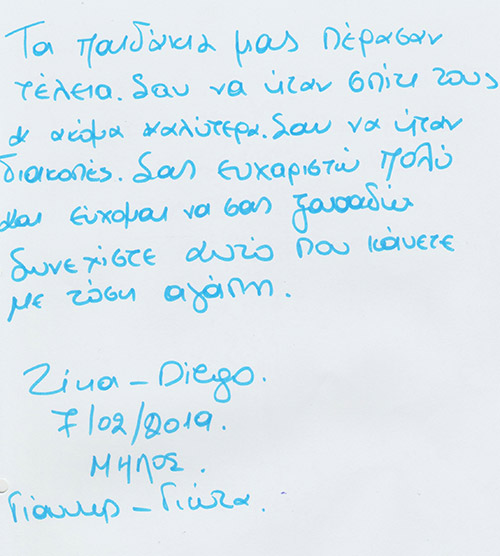 Τα παιδάκια μας πέρασαν
τέλεια. Σαν να ήταν σπίτι τους
& ακόμα καλύτερα. Σαν να ήταν
διακοπές. Σας ευχαριστώ πολύ
και εύχομαι να σας ξαναδώ
Συνεχίστε αυτό που κάνετε
με τόση αγάπη.
Ζίκα - Diego.
7/02/2019.
ΜΗΛΟΣ.
Γιάννης - Γιώτα.